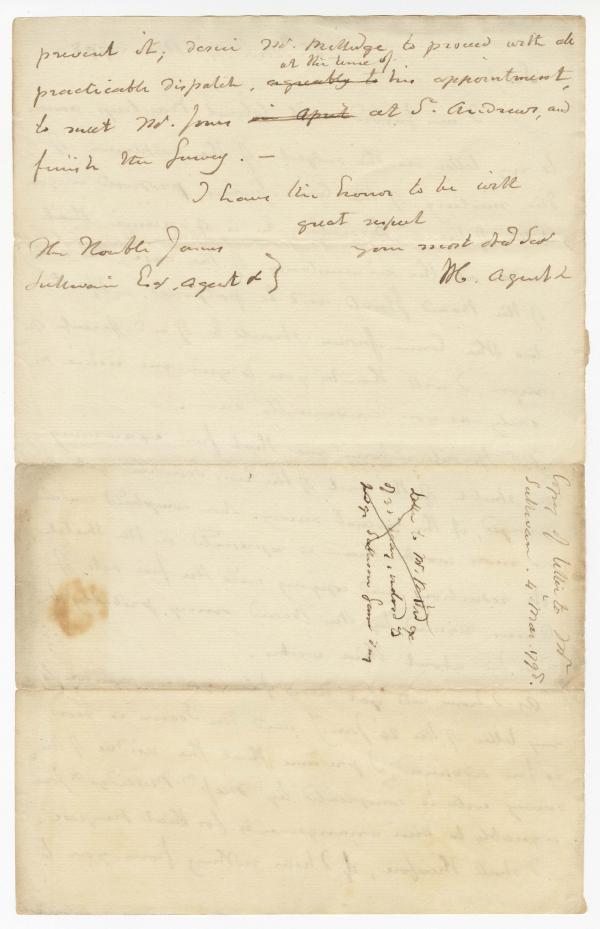 prevent it; desire Mr. Milledge to proceed with all
practicable dispatch, agreably to his appointment,
at the time of
to meet Mr. Jones in April at St. Andrews, and
finish the Survey. —
I have the honor to be with
great respect
your most Obd Ser
The Honble James
Sullivan Esr. Agent &
M. Agent &
Copy of letter to Mr
Sullivan. 4 Mar. 1798.
letter to Mr.
same day